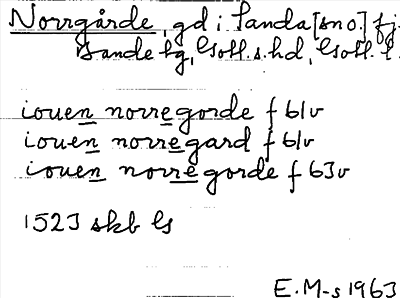 Norrgårde, gd i Sanda [sno.] fj.
Banda hg, Gotl. s. hd, Gotl. l.
iouen norregorde f 61v
iouen norregard f 61v
iouen norregorde f 63v
1523 skb G
E.M-s 1963